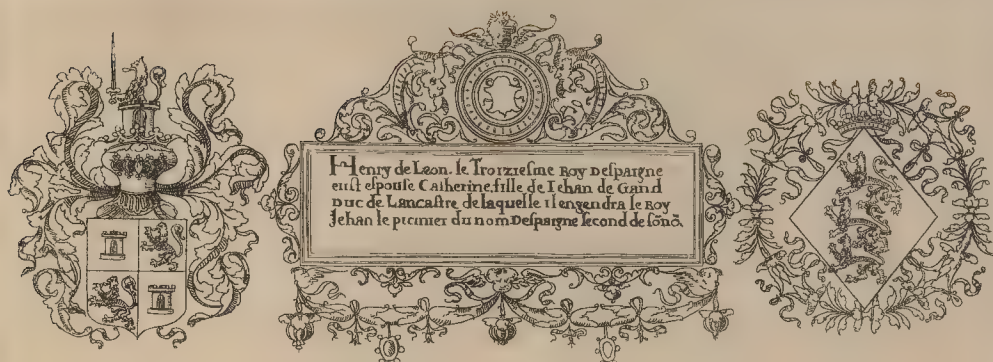 Henry de Leon. le Troiziesme Roy Despaigne
eust espouse Catherine, fille de Jehan de Gand
Duc de Lancastre de laquelle il engendra le Roy
Jehan le premier du nom Despaigne second de sõ nõ.